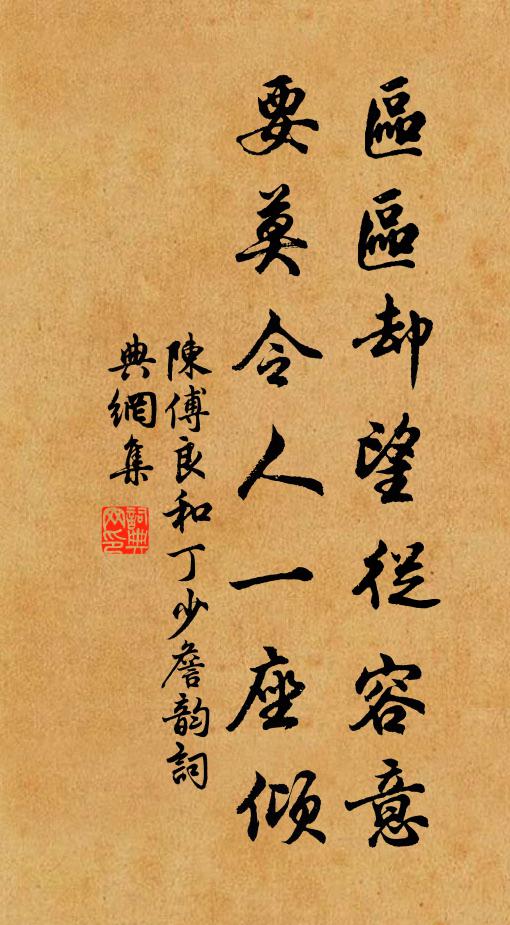 區區却望從容意
要莫令人一座傾
陳傅良和丁少詹韵詞
典網集
詞典
网印